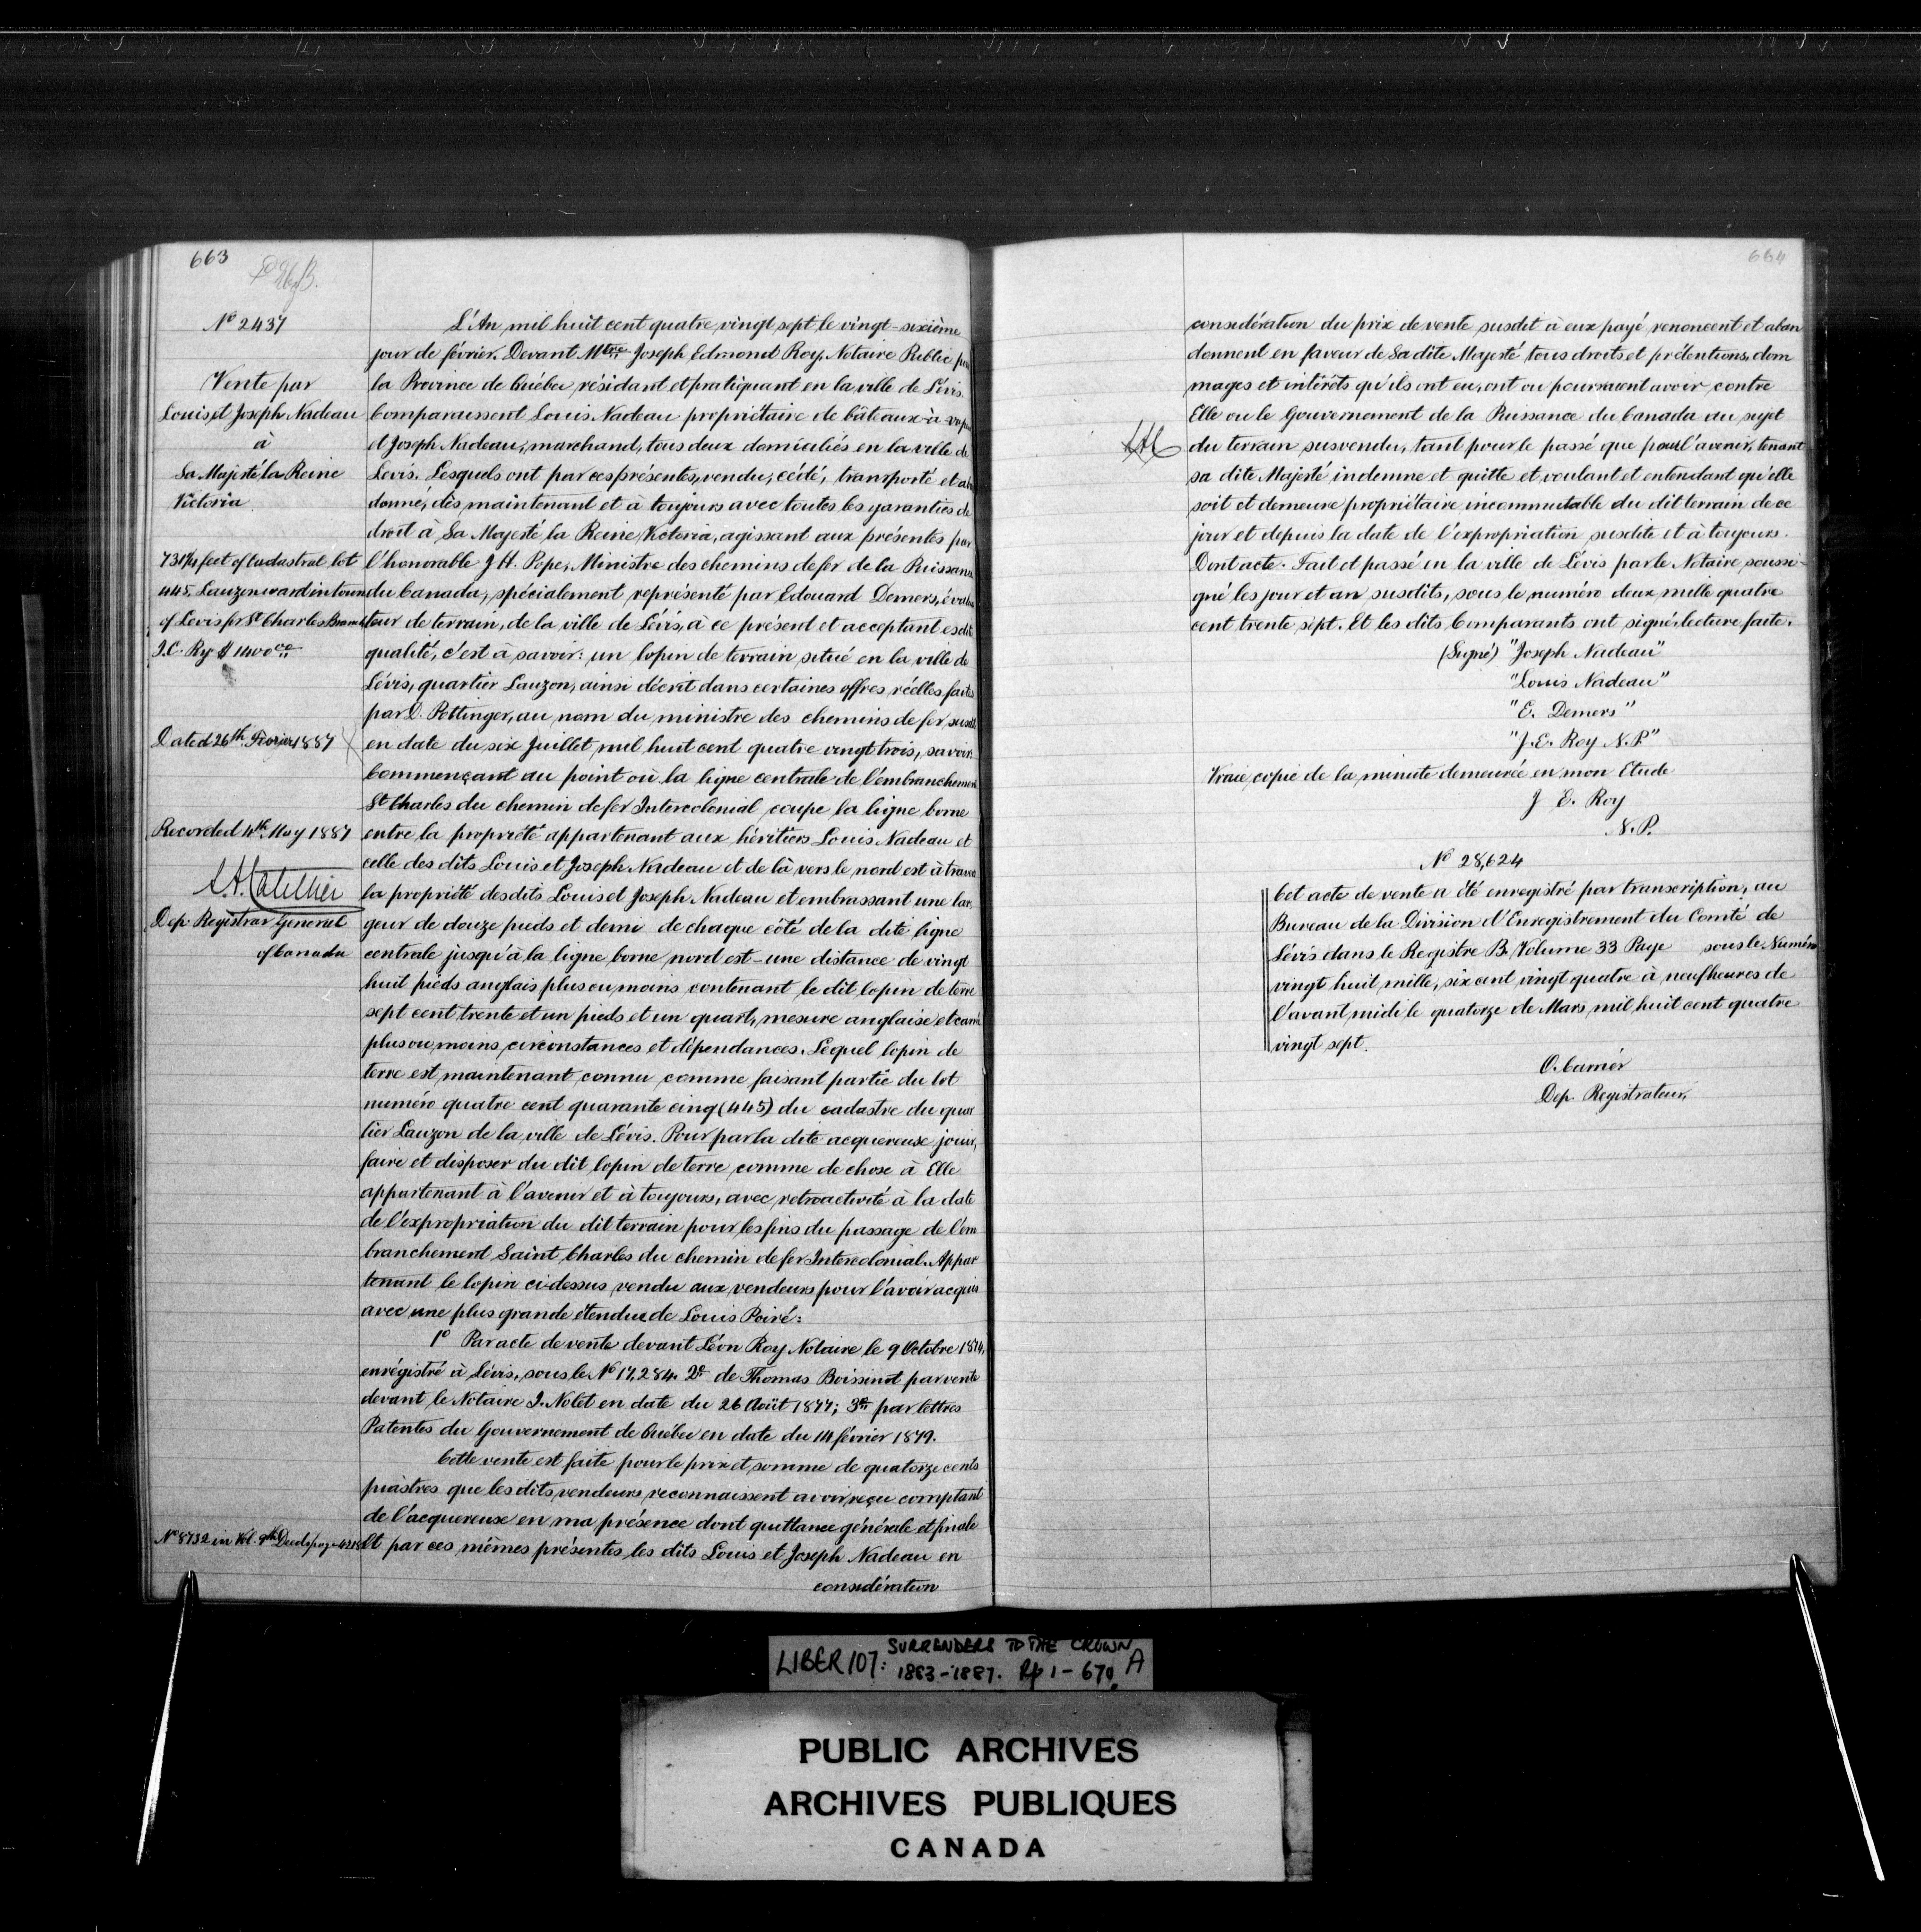 663
No 2437
Vente par
Louis et Joseph Nadeau
à
Sa Majesté la Reine
Victoria
731¼ feet of Cadastral lot
445 Lauzon ward in town
of Levis for St Charles Branch
I.C. Ry $ 1400 00
Dated 26th Février 1887
Recorded 4th May 1887
L.A. Catellier
Dep. Registrar General
of Canada
No 8732 in Vol. 9th Deeds page 421
L'An mil huit cent quatre vingt sept le vingt-sixième
jour de février. Devant Mtre Joseph Edmond Roy, Notaire Public pour
la Province de Québec résidant et pratiquant en la ville de Lévis.
Comparaissent Louis Nadeau propriétaire de bâteaux à vapeur
et Joseph Nadeau, marchand, tous deux domiciliés en la ville de
Levis. Lesquels ont par ces présentes, vendu, cédé, transporté et aban
donné, dès maintenant et à toujours avec toutes les garanties de
droit à Sa Majesté la Reine Victoria, agissant aux présentes par
l'honorable J.H. Pope, Ministre des chemins de fer de la Puissance
du Canada, spécialement représenté par Edouard Demers, évalua
teur de terrain, de la ville de Lévis, à ce présent et acceptant es dite
qualité, c'est à savoir: un lopin de terrain situé en la ville de
Lévis, quartier Lauzon, ainsi décrit dans certaines offres réelles faites
par D. Pottinger, au nom du ministre des chemins de fer susdit
en date du six Juillet mil huit cent quatre vingt trois, savoir:
Commençant au point où la ligne centrale de l'embranchement
St Charles du chemin de fer Intercolonial coupe la ligne borne
entre la propriété appartenant aux héritiers Louis Nadeau et
celle des dits Louis et Joseph Nadeau et de là vers le nord est à travers
la propriété desdits Louis et Joseph Nadeau et embrassant une lar
geur de douze pieds et demi de chaque côté de la dite ligne
centrale jusqu'à la ligne borne nord est - une distance de vingt
huit pieds anglais plus ou moins contenant le dit lopin de terre
sept cent trente et un pieds et un quart, mesure anglaise et carré
plus ou moins, circonstances et dépendances. Lequel lopin de
terre est maintenant connu comme faisant partie du lot
numéro quatre cent quarante cinq (445) du cadastre du quar
tier Lauzon de la ville de Lévis. Pour par la dite acquereuse jouir,
faire et disposer du dit lopin de terre comme de chose à Elle
appartenant à l'avenir et à toujours, avec retroactivité à la date
de l'expropriation du dit terrain pour les fins du passage de l'em
branchement Saint Charles du chemin de fer Intercolonial. Appar
tenant le lopin ci-dessus vendu aux vendeurs pour l'avoir acquis
avec une plus grande étendue de Louis Poiré:
1o Par acte de vente devant Léon Roy Notaire le 9 Octobre 1874,
enrégistré à Lévis, sous le No 17,284. 2o de Thomas Boissinot par vente
devant le Notaire J. Nolet en date du 26 Août 1877; 3o par lettres
Patentes du Gouvernement de Québec en date du 14 février 1879.
Cette vente est faite pour le prix et somme de quatorze cents
piastres que les dits vendeurs reconnaissent avoir reçu comptant
de l'acquereuse en ma présence dont quittance générale et finale
Et par ces mêmes présentes les dits Louis et Joseph Nadeau en
considération
664
considération du prix de vente susdit à eux payé renoncent et aban
donnent en faveur de Sa dite Majesté tous droits et prétentions, dom
mages et intérêts qu'ils ont eu, ont ou pourraient avoir contre
Elle ou le Gouvernement de la Puissance du Canada au sujet
du terrain susvendu, tant pour le passé que pour l'avenir, tenant
sa dite Majesté indemne et quitte et voulant et entendant qu'elle
soit et demeure propriétaire incommutable du dit terrain de ce
jour et depuis la date de l'expropriation susdite et à toujours.
Dont acte. Fait et passé en la ville de Lévis par le Notaire soussi-
gné les jour et an susdits, sous le numéro deux mille quatre
cent trente sept. Et les dits Comparants ont signé, lecture faite.
(Signé) "Joseph Nadeau"
"Louis Nadeau"
"E. Demers"
"J.E. Roy N.P."
Vraie copie de la minute demeurée en mon Etude
J E. Roy
N.P.
No 28,624
Cet acte de vente a été enregistré par transcription, au
Bureau de la Division d'Enregistrement du Comté de
Lévis dans le Registre B. Volume 33 Page sous le Numéro
vingt huit mille, six cent vingt quatre à neuf heures de
l'avant midi le quatorze de Mars mil huit cent quatre
vingt sept.
O. Carrier
Dep. Registrateur.
LIBER 107: SURRENDERS TO THE CROWN
1883-1887. Pp 1-670. A
PUBLIC ARCHIVES
ARCHIVES PUBLIQUES
CANADA